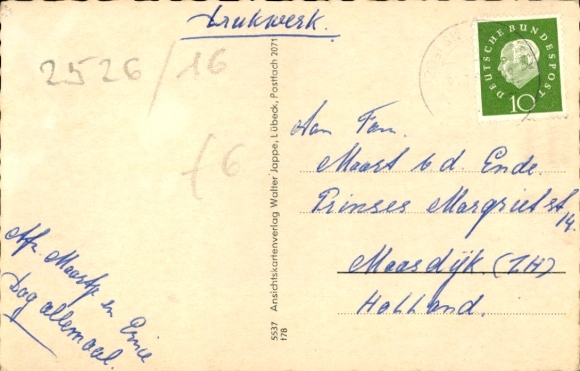 Drukwerk.
2526/16
f6
DEUTSCHE BUNDESPOST
10
Aan Fam.
Maart v d. Ende.
Prinses Margriet st
14.
Maasdijk. (Z.H)
Holland.
Afz. Maartje en
Dag allemaal.
5537 Ansichtskartenverlag Walter Jappe, Lübeck, Postfach 2071
178